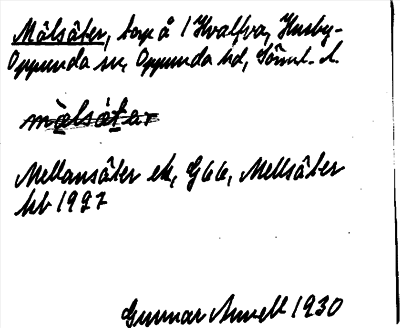 Mälsäter, torp å 1 Hvalfva, Husby-
Oppunda sn, Oppunda hd, Söml. l.
màlsátar
Mellansäter ek, G66, Mellsäter
kb 1927
Gunnar Arwell 1930